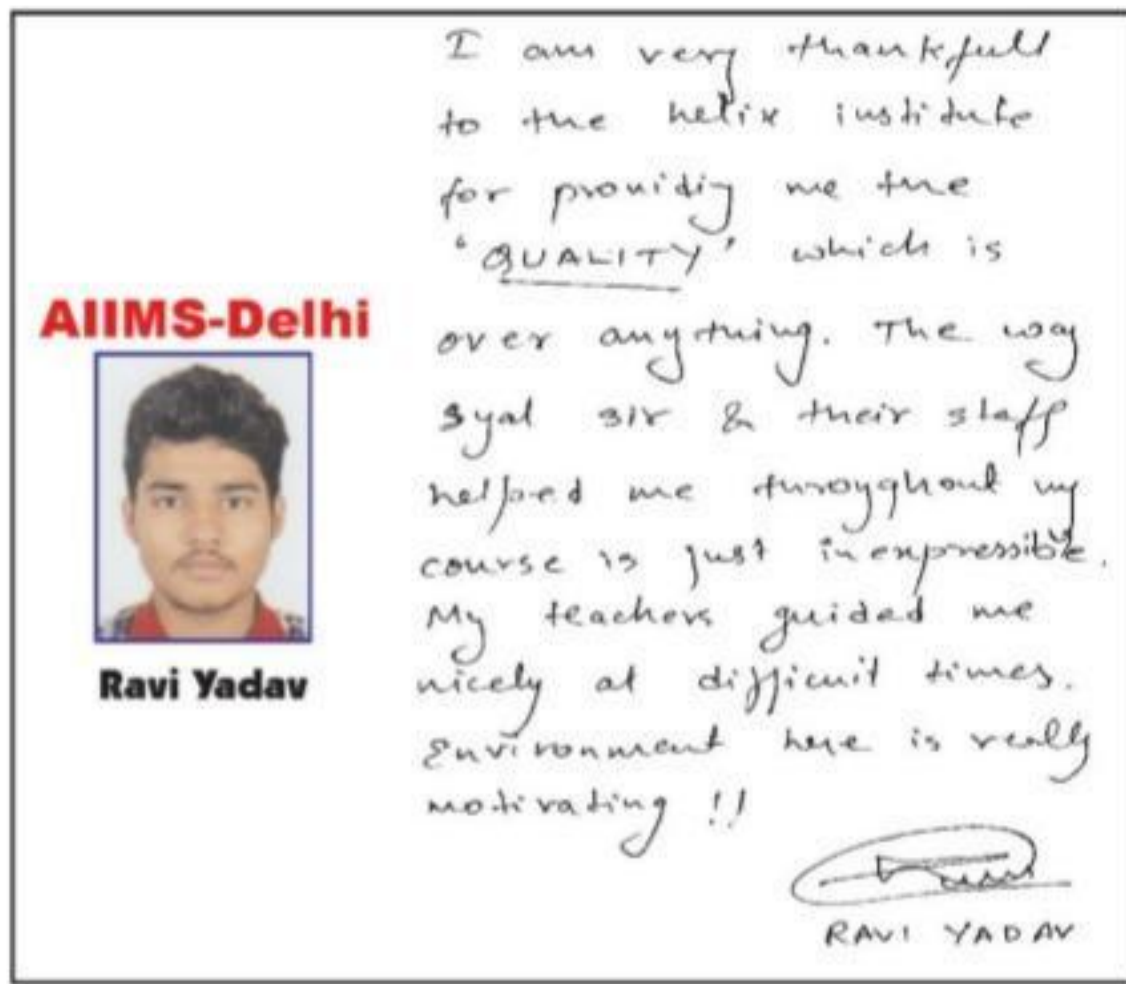 AIIMS-Delhi
Ravi Yadav
I am very thankfull
to the helix institute
for providig me the
'QUALITY' which is
over anything. The way
Syal sir & their staff
helped me throyghout my
course is just inexpressible.
My teachers guided me
nicely at difficult times.
Environment here is really
motivating !!
RAVI YADAV